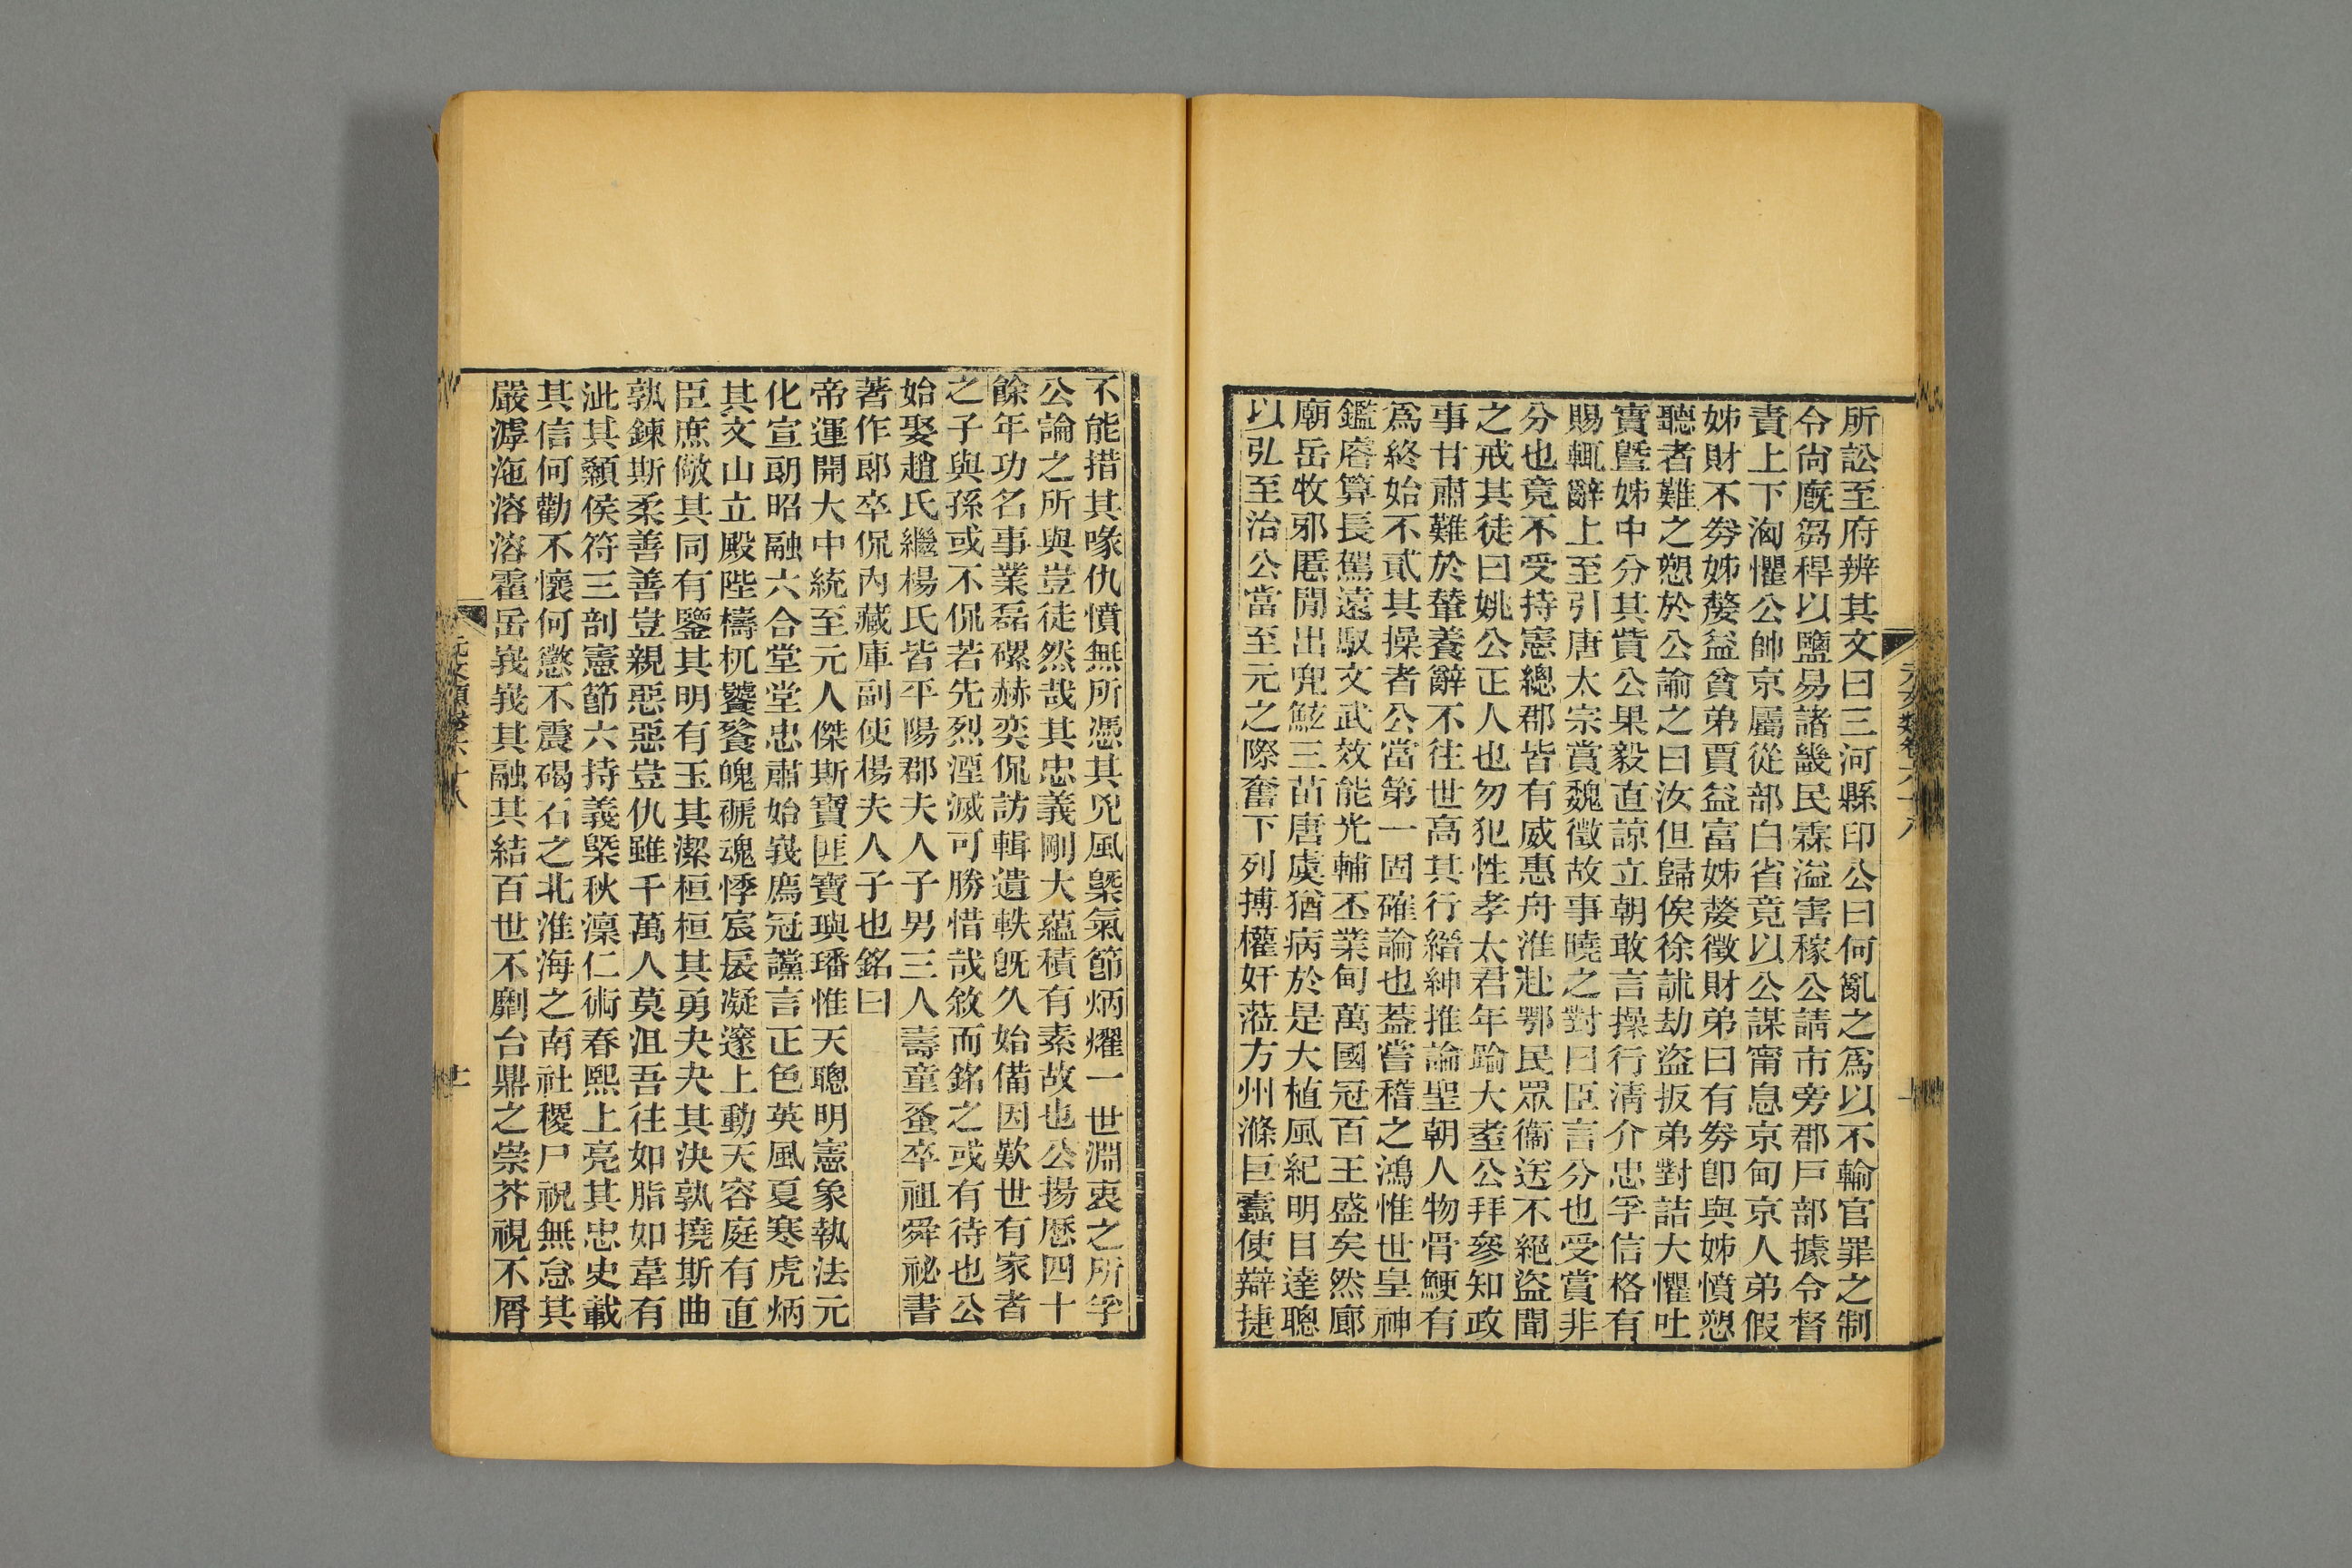 所訟至府辨其文曰三河縣印公曰何亂之爲以不輸官罪之制
令尙廐芻稈以鹽易諸畿民霖溢害稼公請市旁郡戶部據令督
責上下洶懼公帥京屬從部白省竟以公謀甯息京甸京人弟假
姊財不劵姊嫠益貧弟賈益富姊嫠徵財弟曰有劵卽與姊憤愬
聽者難之愬於公諭之曰汝但歸俟徐訹劫盜扳弟對詰大懼吐
實曁姊中分其貲公果毅直諒立朝敢言操行淸介忠孚信格有
賜輒辭上至引唐太宗賞魏徵故事曉之對曰臣言分也受賞非
分也竟不受持憲總郡皆有威惠舟淮赴鄂民眾衞送不絕盜聞
之戒其徒曰姚公正人也勿犯性孝太君年踰大耋公拜參知政
事甘肅難於輦養辭不往世高其行縉紳推論聖朝人物骨鯁有
爲終始不貳其操者公當第一固確論也蓋嘗稽之鴻惟世皇神
鑑睿算長駕遠馭文武效能光輔丕業甸萬國冠百王盛矣然廊
廟岳牧邪慝閒出兜鮌三苗唐虞猶病於是大植風紀明目達聰
以弘至治公當至元之際奮下列搏權奸蒞方州滌巨蠹使辯捷
不能措其喙仇憤無所憑其兇風槩氣節炳燿一世淵衷之所孚
公論之所與豈徒然哉其忠義剛大蘊積有素故也公揚歷四十
餘年功名事業磊磥赫奕侃訪輯遺軼旣久始備因歎世有家者
之子與孫或不侃若先烈湮滅可勝惜哉敘而銘之或有待也公
始娶趙氏繼楊氏皆平陽郡夫人子男三人壽童蚤卒祖舜祕書
著作郎卒侃內藏庫副使楊夫人子也銘曰
帝運開大中統至元人傑斯寶匪寶璵璠惟天聰明憲象執法元
化宣朗昭融六合堂堂忠肅始峩廌冠讜言正色英風夏寒虎炳
其文山立殿陛檮杌饕餮魄褫魂悸宸扆凝邃上動天容庭有直
臣庶儆其同有鑒其明有玉其潔桓桓其勇夬夬其決孰撓斯曲
孰鍊斯柔善善豈親惡惡豈仇雖千萬人莫沮吾往如脂如韋有
泚其顙侯符三剖憲節六持義槩秋凜仁術春熙上亮其忠史載
其信何勸不懷何懲不震碣石之北淮海之南社稷尸祝無怠其
嚴滹沲溶溶霍岳峩峩其融其結百世不劘台鼎之崇芥視不屑
元文類卷六十八